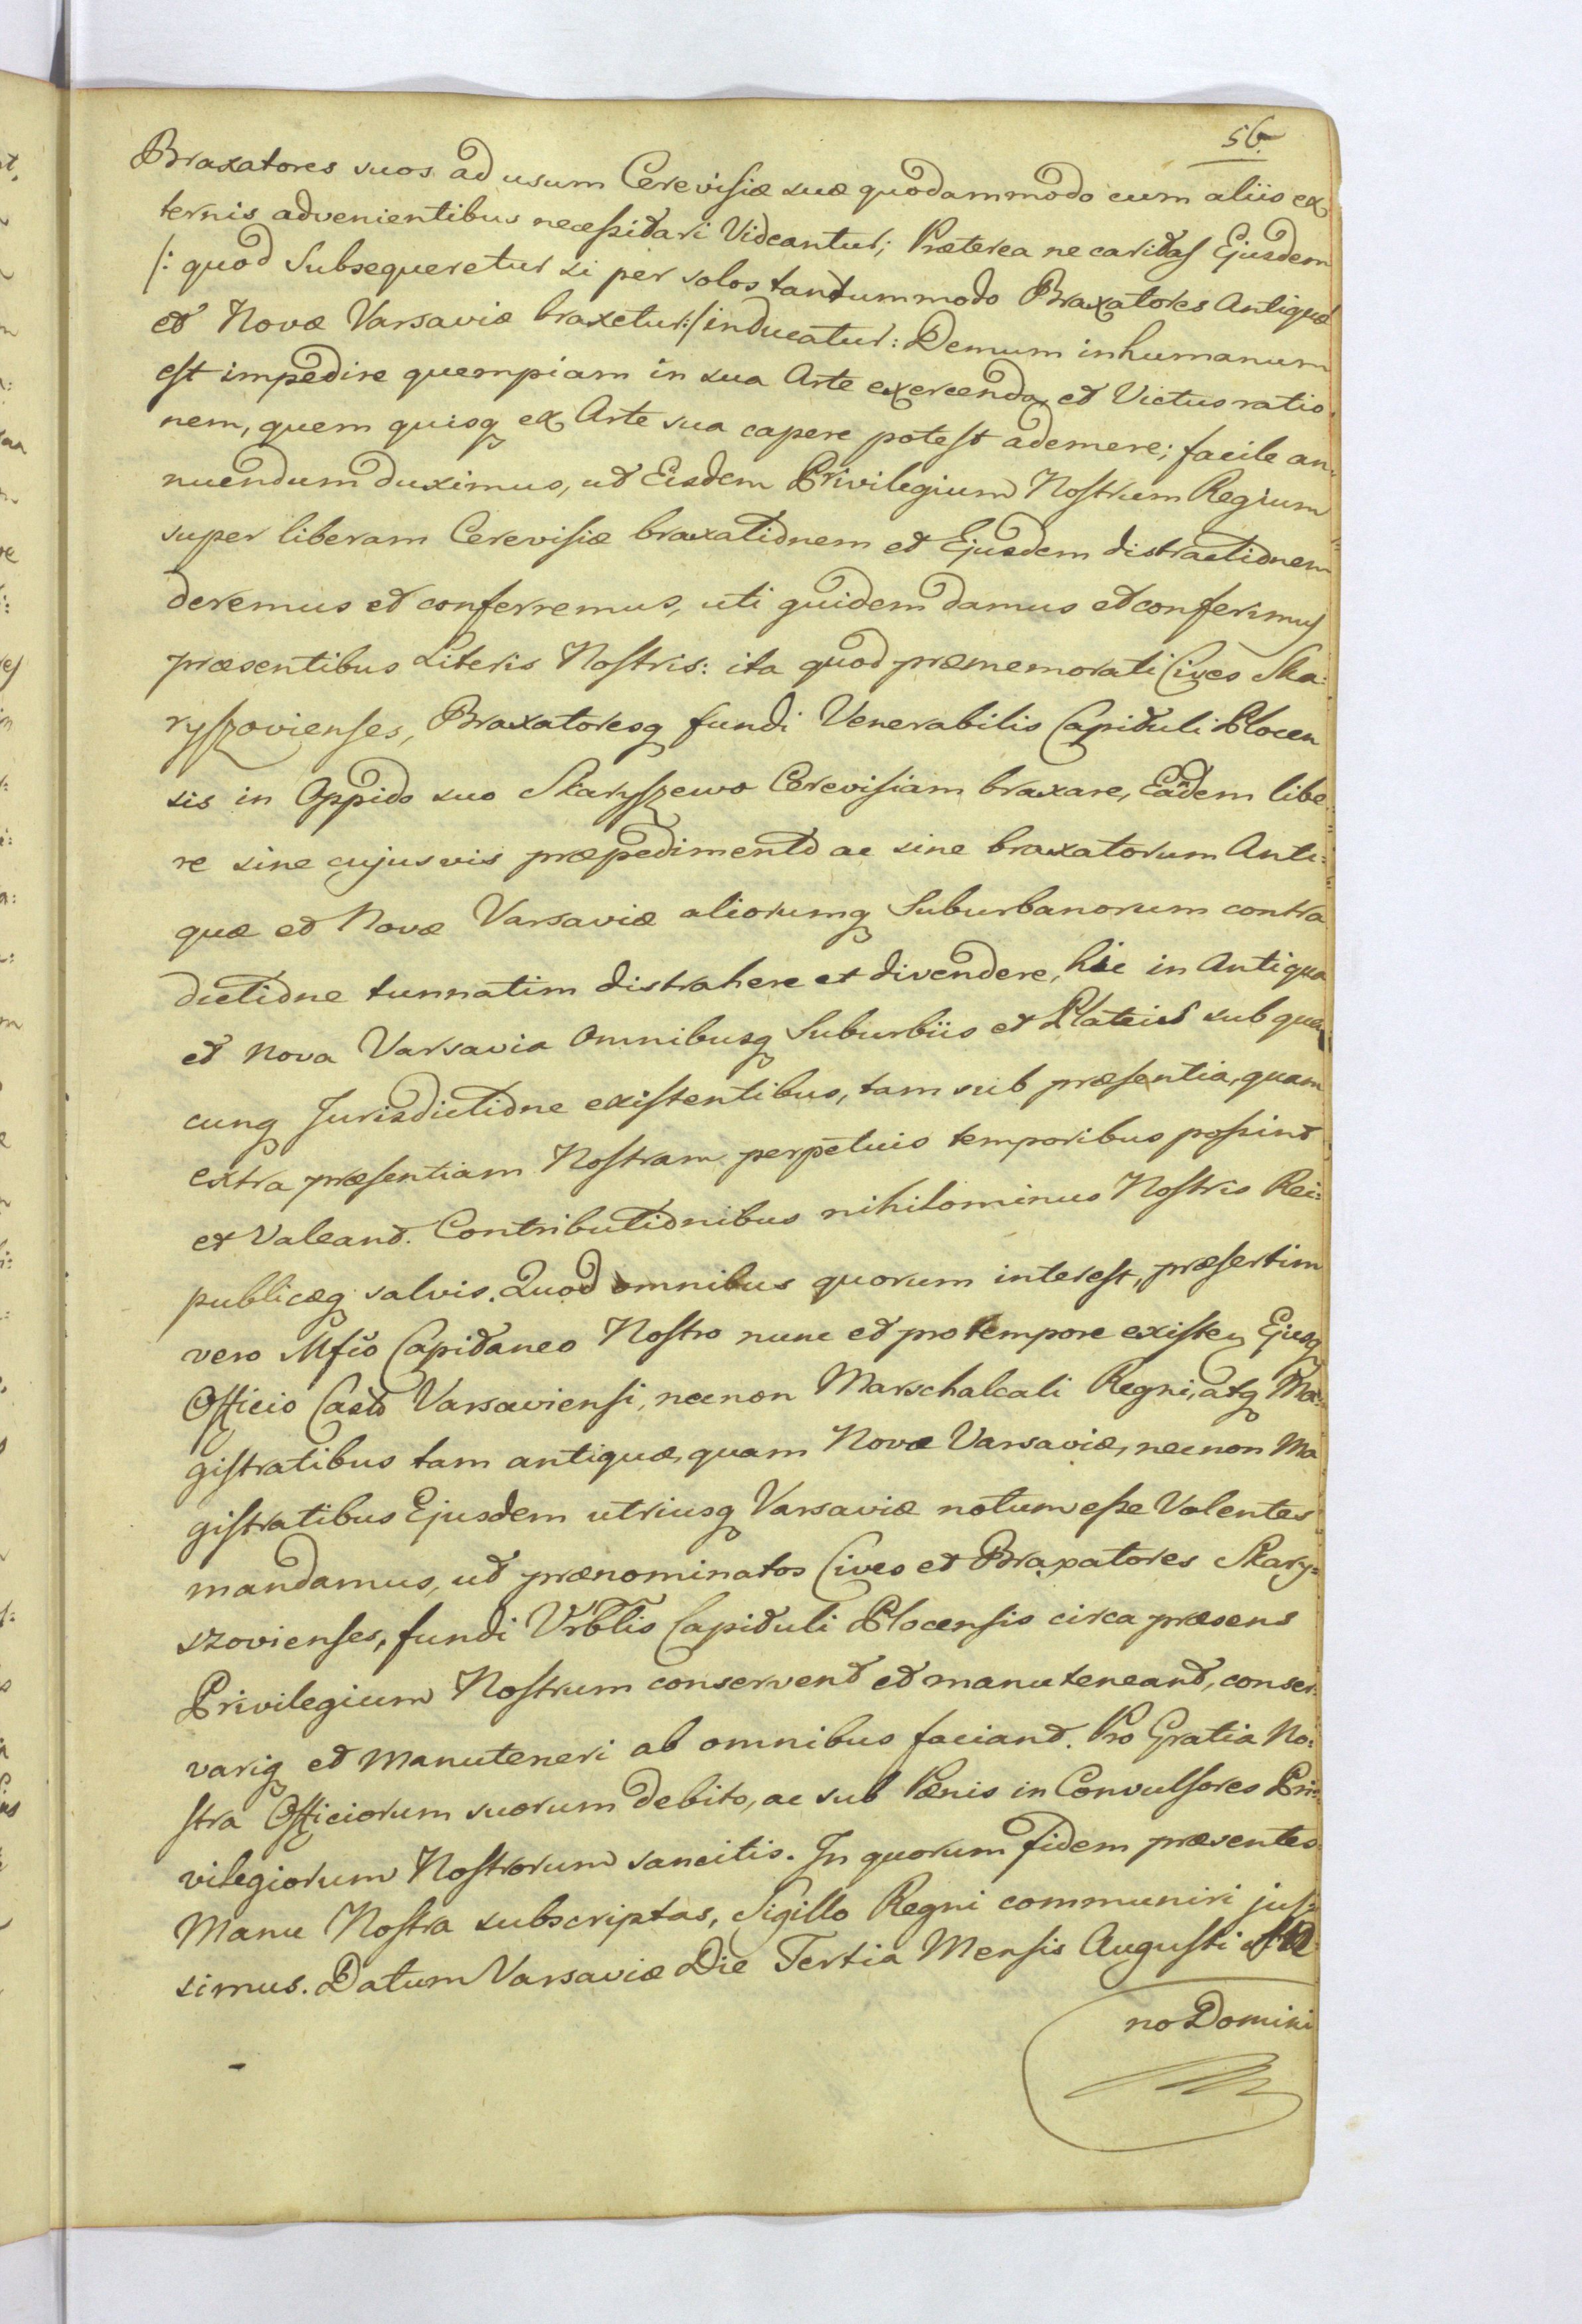 56.
Braxatores suos ad usum Cerevisiæ suæ quodammodo cum aliis ex
ternis advenientibus necessitari Videantur; Præterea ne caritas Ejusdem
/: quod Subsequeretur si per solos tantummodo Braxatores Antiquæ
et Novæ Varsaviæ braxetur :/ inducatur: Demum inhumanum
est impedire quempiam in sua Arte exercenda, et Victus ratio-
nem, quem quisq ex Arte sua capere potest ademere; facile an-
nuendum duximus, ut Eisdem Privilegium Nostrum Regium
super liberam Cerevisiæ braxationem et Ejusdem distractionem
daremus et conferremus, uti quidem damus et conferimus
præsentibus Literis Nostris: ita quod præmemorati Cives Ska:
ryszovienses, Braxatoresq fundi Venerabilis Capituli Plocen
sis in Oppido suo Skaryszewo Cerevisiam braxare, Eandem libe
re sine cujusvis præpedimento ac sine braxatorum Anti:
quæ et Novæ Varsaviæ aliorumq Suburbanorum contra
dictione tunnatim distrahere et divendere, hic in Antiqua
et Nova Varsavia Omnibusq Suburbiis et Plateis sub qua
cunq Jurisdictione existentibus, tam sub præsentia, quam
extra præsentiam Nostram perpetuis temporibus possint
et Valeant. Contributionibus nihilominus Nostris Rei:
publicæq salvis. Quod omnibus quorum interest, præsertim
vero Mfco Capitaneo Nostro nunc et pro tempore existen Ejusq
Officio Castr Varsaviensi, necnon Marschalcali Regni, atq Ma:
gistratibus tam antiquæ, quam Novæ Varsaviæ, necnon Ma
gistratibus Ejusdem utriusq Varsaviæ notum esse Volentes
mandamus, ut prænominatos Cives et Braxatores Skary=
szovienses, fundi Vrblis Capituli Plocensis circa præsens
Privilegium Nostrum conservent et manuteneant, conser:
variq et manuteneri ab omnibus faciant. Pro Gratia No:
stra Officiorum suorum debito, ac sub Pœnis in Convulsores Pri:
vilegiorum Nostrorum sancitis. In quorum fidem præsentes
Manu Nostra subscriptas, Sigillo Regni communiri jus:
simus. Datum Varsaviæ Die Tertia Mensis Augusti An
no Domini